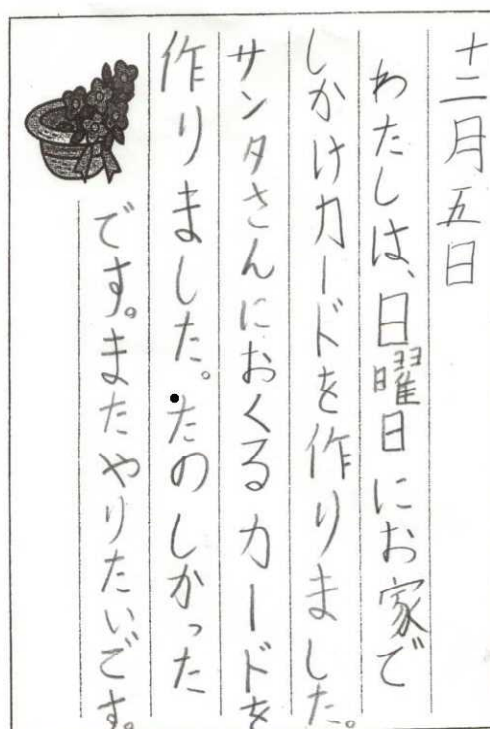 十二月五日
わたしは、日曜日にお家で
しかけカードを作りました。
サンタさんにおくるカードを
作りました。たのしかった
です。またやりたいです。